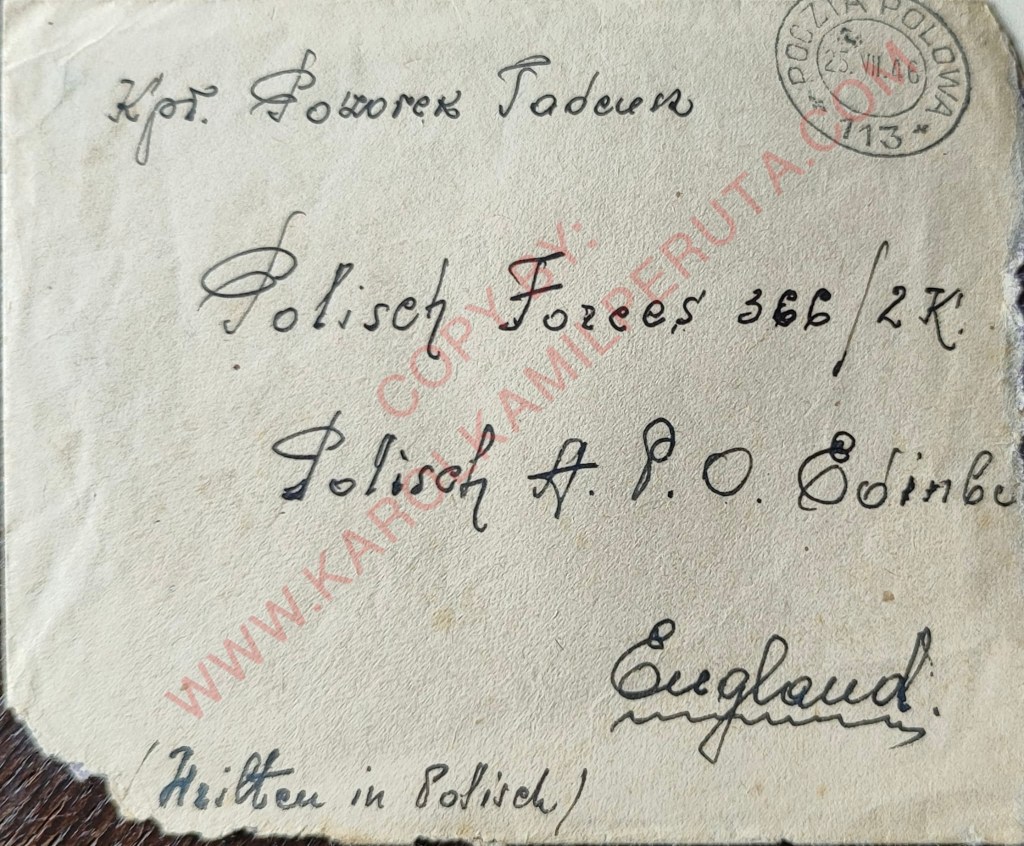 POCZTA POLOWA
23.VII.46
* 113 *
Kpr. Poworek Tadeusz
Polisch Forces 366/2K.
Polisch A. P. O. Edinbu
England.
(Written in Polisch)
COPY BY:
WWW.KAROLKAMILPERUTA.COM